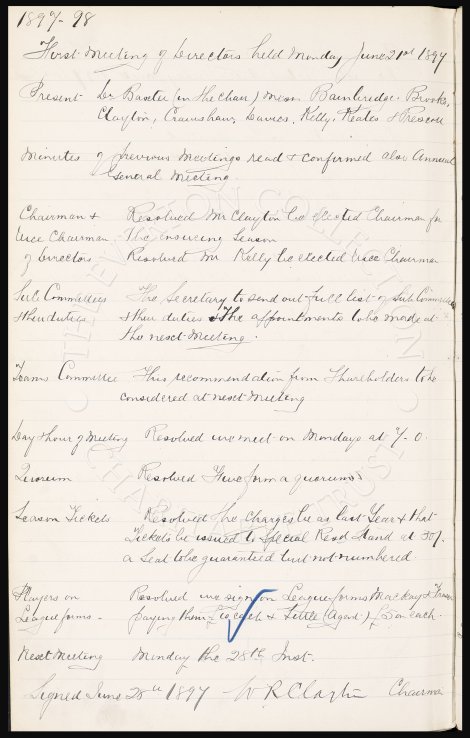 1897-98
First Meeting of Directors held Monday June 21st 1897
Present Dr Baxter (in the chair) Messrs Bainbridge, Brooks,
Clayton, Crawshaw, Davies, Kelly, Keates & Prescott
Minutes of previous Meetings read & confirmed also Annual
General Meeting.
Chairman & Resolved Mr Clayton be elected Chairman for
Vice Chairman the ensuing Season
of Directors Resolved Mr Kelly be elected Vice Chairman
Sub Committees The Secretary to send out full list of Sub Committees
& their duties & their duties & the appointments to be made at
the next Meeting.
Teams Committee This recommendation from Shareholders to be
considered at next Meeting
Day & hour of Meeting Resolved we meet on Mondays at 7-0.
Quorum Resolved Five form a quorum
Season Tickets Resolved the Charges be as last Year & that
Tickets be issued to Special Resd Stand at 30/-
a Seat to be guaranteed but not numbered.
Players on Resolved we sign on League forms Mackay &
League forms - paying them £10 each & Little (agent) £5 on each.
Next Meeting Monday the 28th Inst.
Signed June 28th 1897 W R Clayton Chairman
CIVILEVERTON COLLECTION
CHARITABLE TRUST